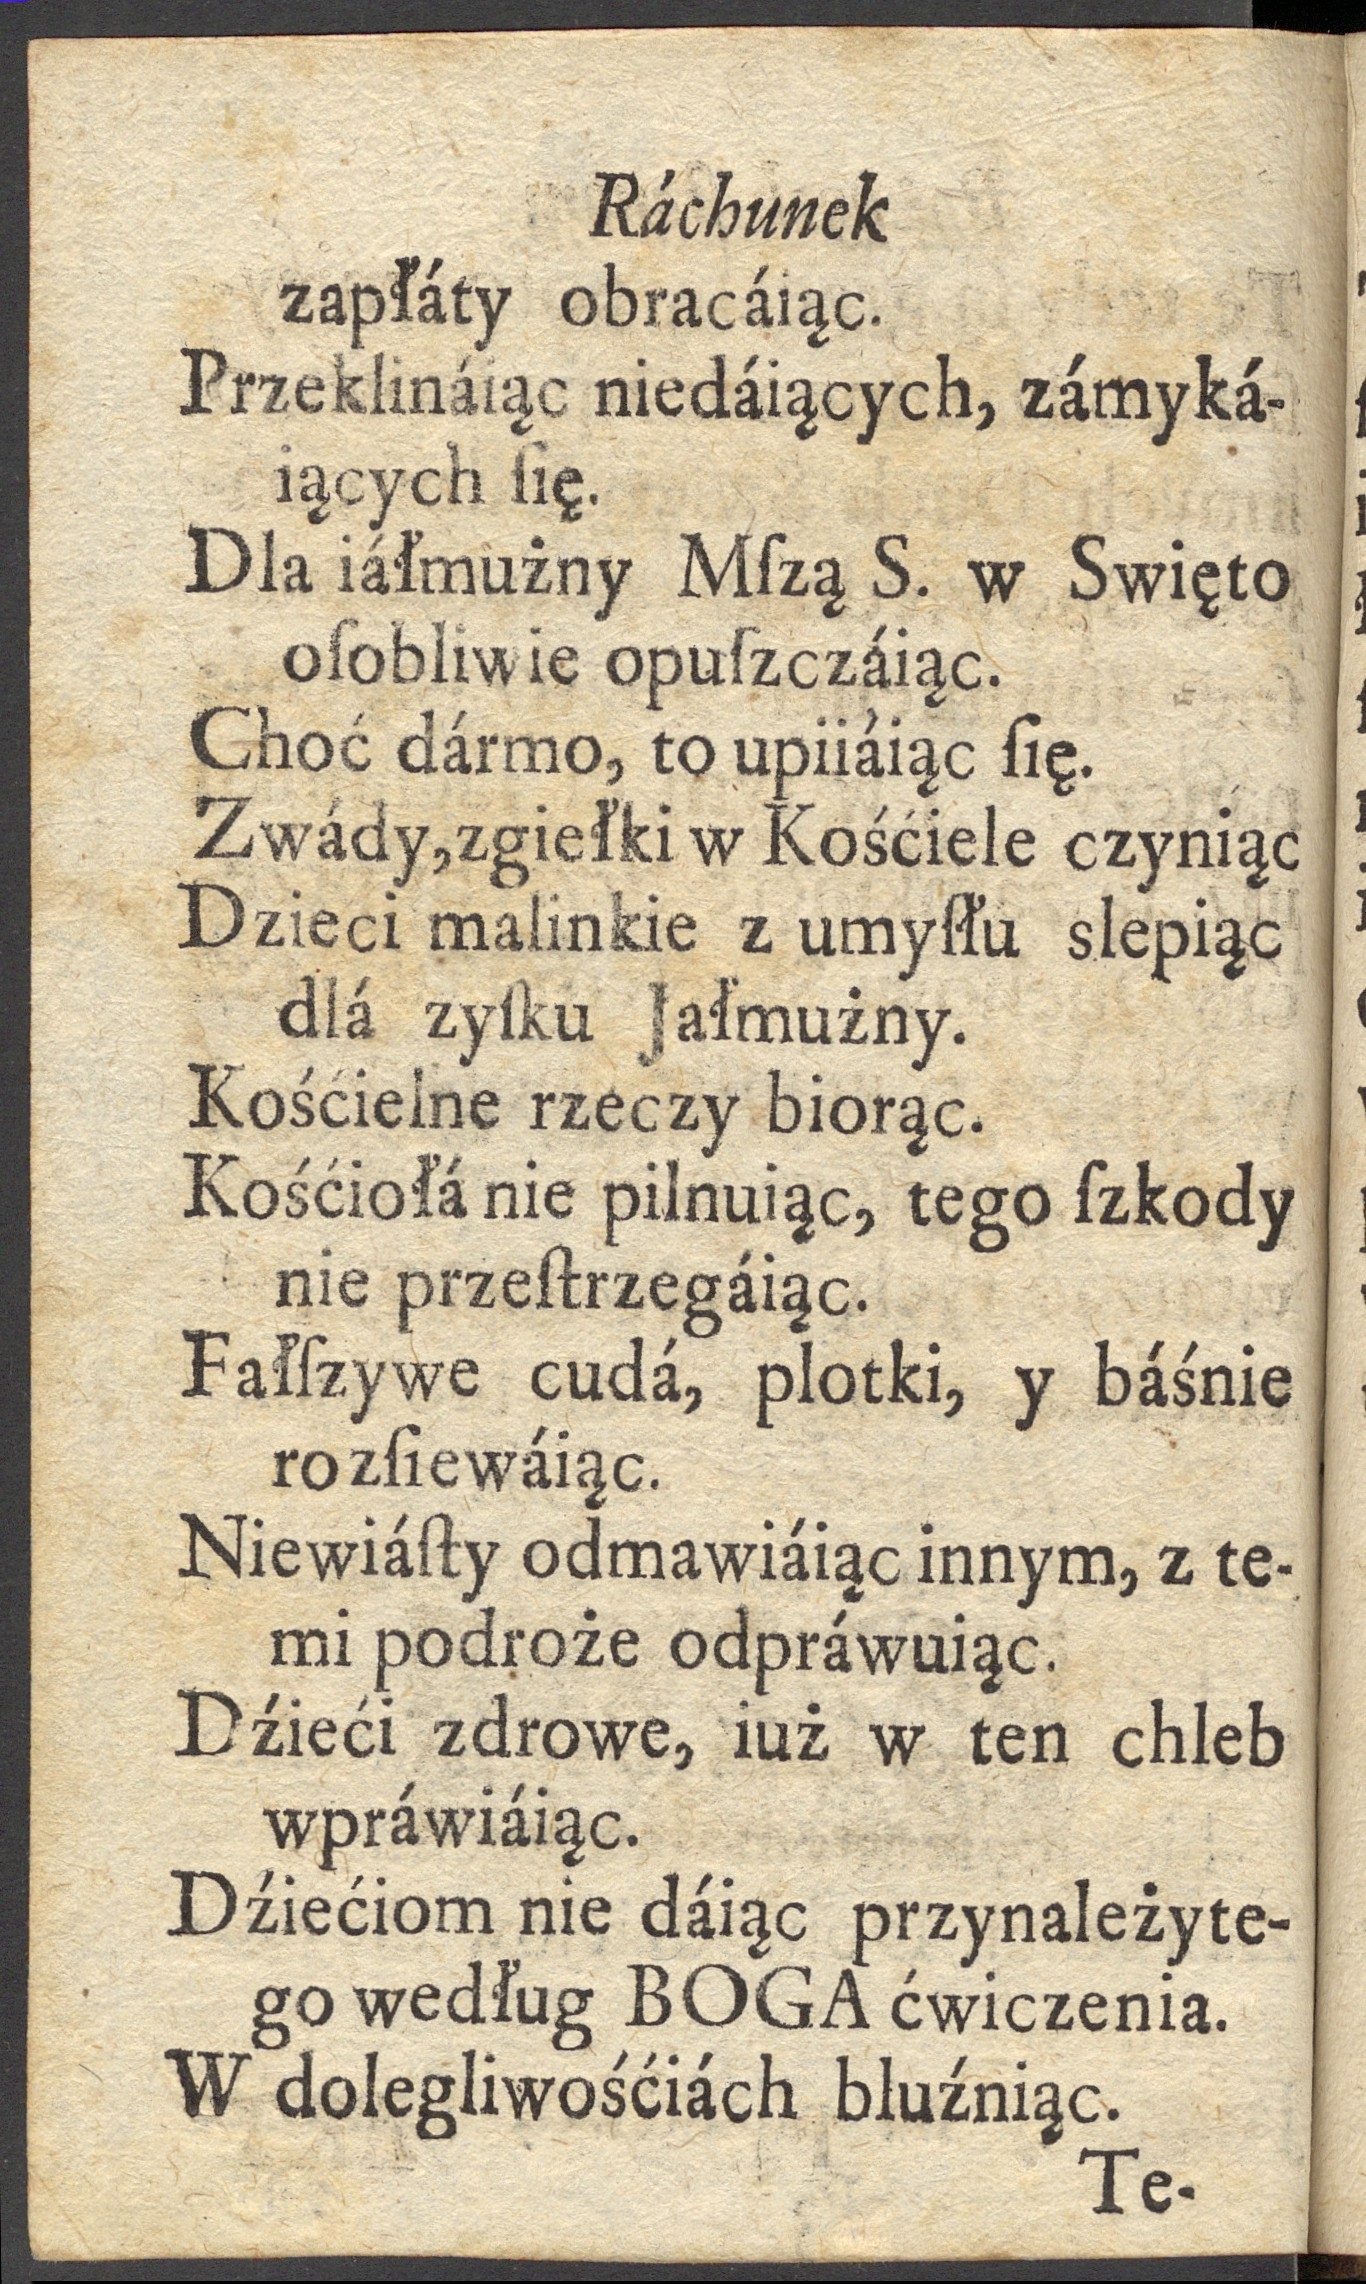 Ráchunek
zapłáty obracáiąc.
Przeklináiąc niedáiących, zámyká-
iących ſię.
Dla iáłmużny Mſzą S. w Swięto
oſobliwie opuſzczáiąc.
Choć dármo, to upiiáiąc ſię.
Zwády, zgiełki w Kośćiele czyniąc
Dzieci malinkie z umyſłu slepiąc
dlá zyſku Jałmużny.
Kośćielne rzeczy biorąc.
Kośćiołá nie pilnuiąc, tego ſzkody
nie przeſtrzegáiąc.
Fałſzywe cudá, plotki, y báśnie
rozſiewáiąc.
Niewiáſty odmawiáiąc innym, z te-
mi podroże odpráwuiąc.
Dźieći zdrowe, iuż w ten chleb
wpráwiáiąc.
Dźiećiom nie dáiąc przynależyte-
go według BOGA ćwiczenia.
W dolegliwośćiách bluźniąc.
Te-